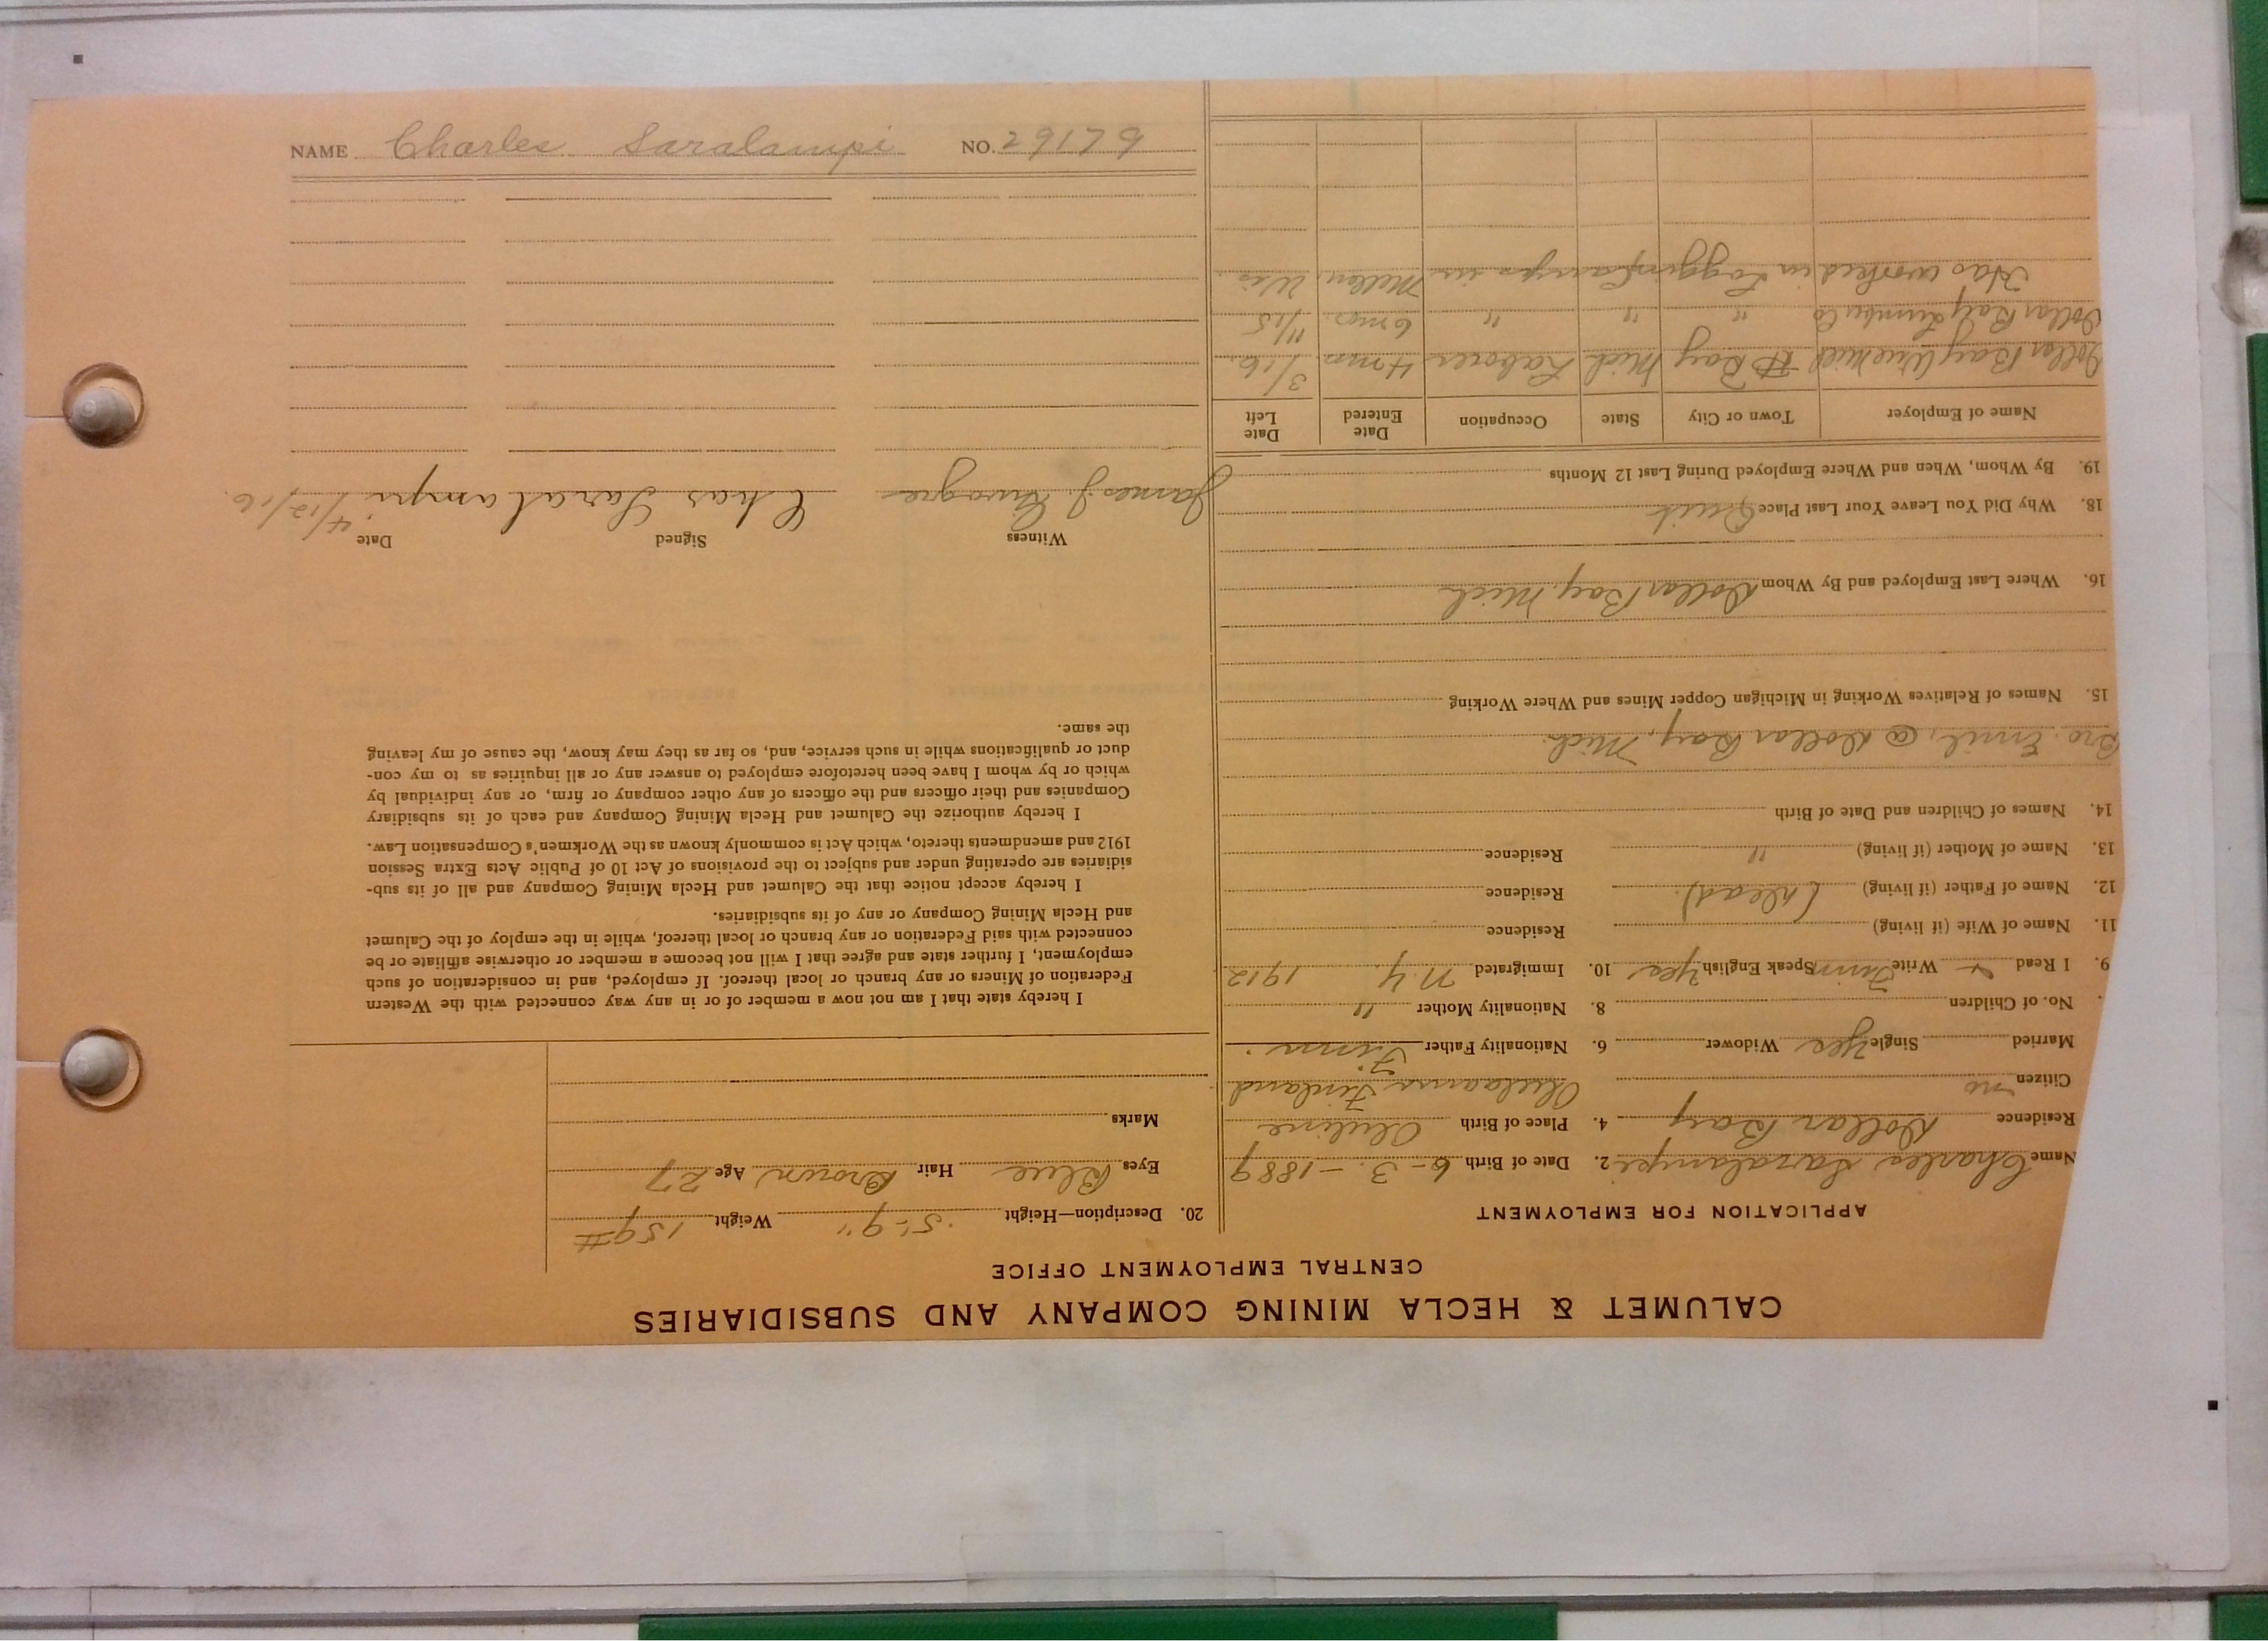 NAME Charles Saralampi NO. 29179
CALUMET & HECLA MINING COMPANY AND SUBSIDIARIES
CENTRAL EMPLOYMENT OFFICE
APPLICATION FOR EMPLOYMENT
Name Charles Saralampi 2. Date of Birth 6-3-1889
Residence Dollar Bay 4. Place of Birth
Citizen no Finland
Married Single Yes Widower 6. Nationality Father Finn.
No. of Children 8. Nationality Mother "
9. I Read Write Finn Speak English Yes 10. Immigrated N.Y. 1912
11. Name of Wife (if living) Residence
12. Name of Father (if living) (dead). Residence
13. Name of Mother (if living) " Residence
14. Names of Children and Date of Birth
Bro. Emil, @ Dollar Bay, Mich.
15. Names of Relatives Working in Michigan Copper Mines and Where Working
16. Where Last Employed and By Whom Dollar Bay, Mich
18. Why Did You Leave Your Last Place Quit
19. By Whom, When and Where Employed During Last 12 Months
Name of Employer Town or City State Occupation Date Entered Date Left
Dollar Bay Wire Mill Bay Mich Laborer 4 mos. 3/16.
Dollar Bay Lumber Co " " " 6 mos. 11/15
Has worked in Logging Camps in Mellen, Wis.
20. Description—Height 5'-9" Weight 159#
Eyes Blue Hair Brown Age 27
Marks
I hereby state that I am not now a member of or in any way connected with the Western
Federation of Miners or any branch or local thereof. If employed, and in consideration of such
employment, I further state and agree that I will not become a member or otherwise affiliate or be
connected with said Federation or any branch or local thereof, while in the employ of the Calumet
and Hecla Mining Company or any of its subsidiaries.
I hereby accept notice that the Calumet and Hecla Mining Company and all of its sub-
sidiaries are operating under and subject to the provisions of Act 10 of Public Acts Extra Session
1912 and amendments thereto, which Act is commonly known as the Workmen's Compensation Law.
I hereby authorize the Calumet and Hecla Mining Company and each of its subsidiary
Companies and their officers and the officers of any other company or firm, or any individual by
which or by whom I have been heretofore employed to answer any or all inquiries as to my con-
duct or qualifications while in such service, and, so far as they may know, the cause of my leaving
the same.
Witness Signed Date
James J. Chas Saralampi 4/12/16.